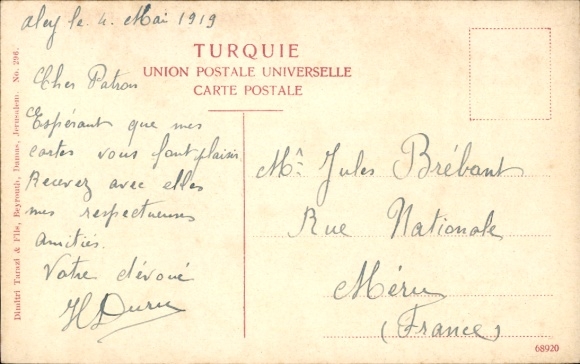 Aley le 4 Mai 1919
TURQUIE
UNION POSTALE UNIVERSELLE
CARTE POSTALE
Cher Patron
Espérant que mes
cartes vous font plaisir
Recevez avec elles
mes respectueuses
amitiés.
Votre dévoué
Mr. Jules Brébant
Rue Nationale
Méru
(France)
Dimitri Tarazi & Fils, Beyrouth, Damas, Jerusalem. No. 296.
68920